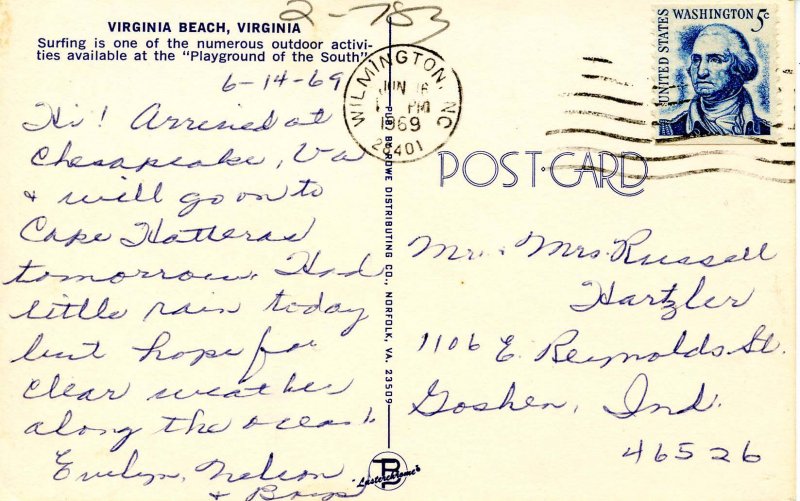 2-783
VIRGINIA BEACH, VIRGINIA
Surfing is one of the numerous outdoor activi-
ties available at the "Playground of the South"
6-14-69
Hi! Arrived at
Chesapeake, Va
& will go on to
Cape Hatteras
tomorrow. Had
little rain today
but hope for
clear weather
along the ocean
Evelyn, Nelson
& Boys
WILMINGTON, NC
JUN 16
PM
1969
28401
PUB. BY ROWE DISTRIBUTING CO., NORFOLK, VA. 23509
"Lusterchrome"
UNITED STATES
WASHINGTON 5c
POST-CARD
Mr. Mrs. Russell
Hartzler
1106 E. Reynolds St.
Goshen, Ind.
46526